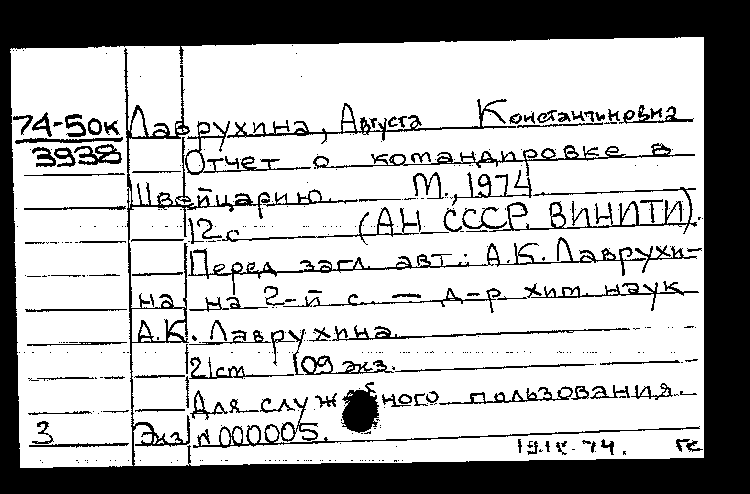 74-50к Лаврухина, Августа Константиновна
3938 Отчет о командировке в
Швейцарию. М., 1974.
12с (АН СССР. ВИНИТИ).
Перед загл. авт.: А.К. Лаврухи-
на, на 2-й с. — д-р хим. наук
А.К. Лаврухина.
21ст 109 экз.
Для служебного пользования.
3 Экз N 000005.
74. гс